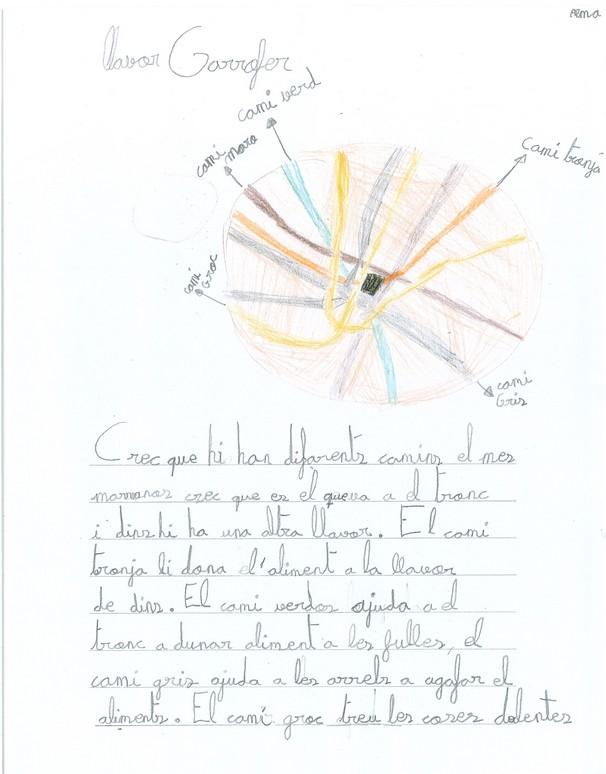 Alma
llavor Garrofer
cami verd
cami maro
cami tronja
cami Groc
cami Gris
Crec que hi han difarents camins el mes
marronos crec que es el queva a el tronc
i dins hi ha una altra llavor. El cami
tronja li dona el'aliment a la llavor
de dins. El cami verdos ajuda a el
tronc a dunar aliment a les fulles, el
cami gris ajuda a les arrels a agafar el
aliments. El cami groc treu les coses dolentes